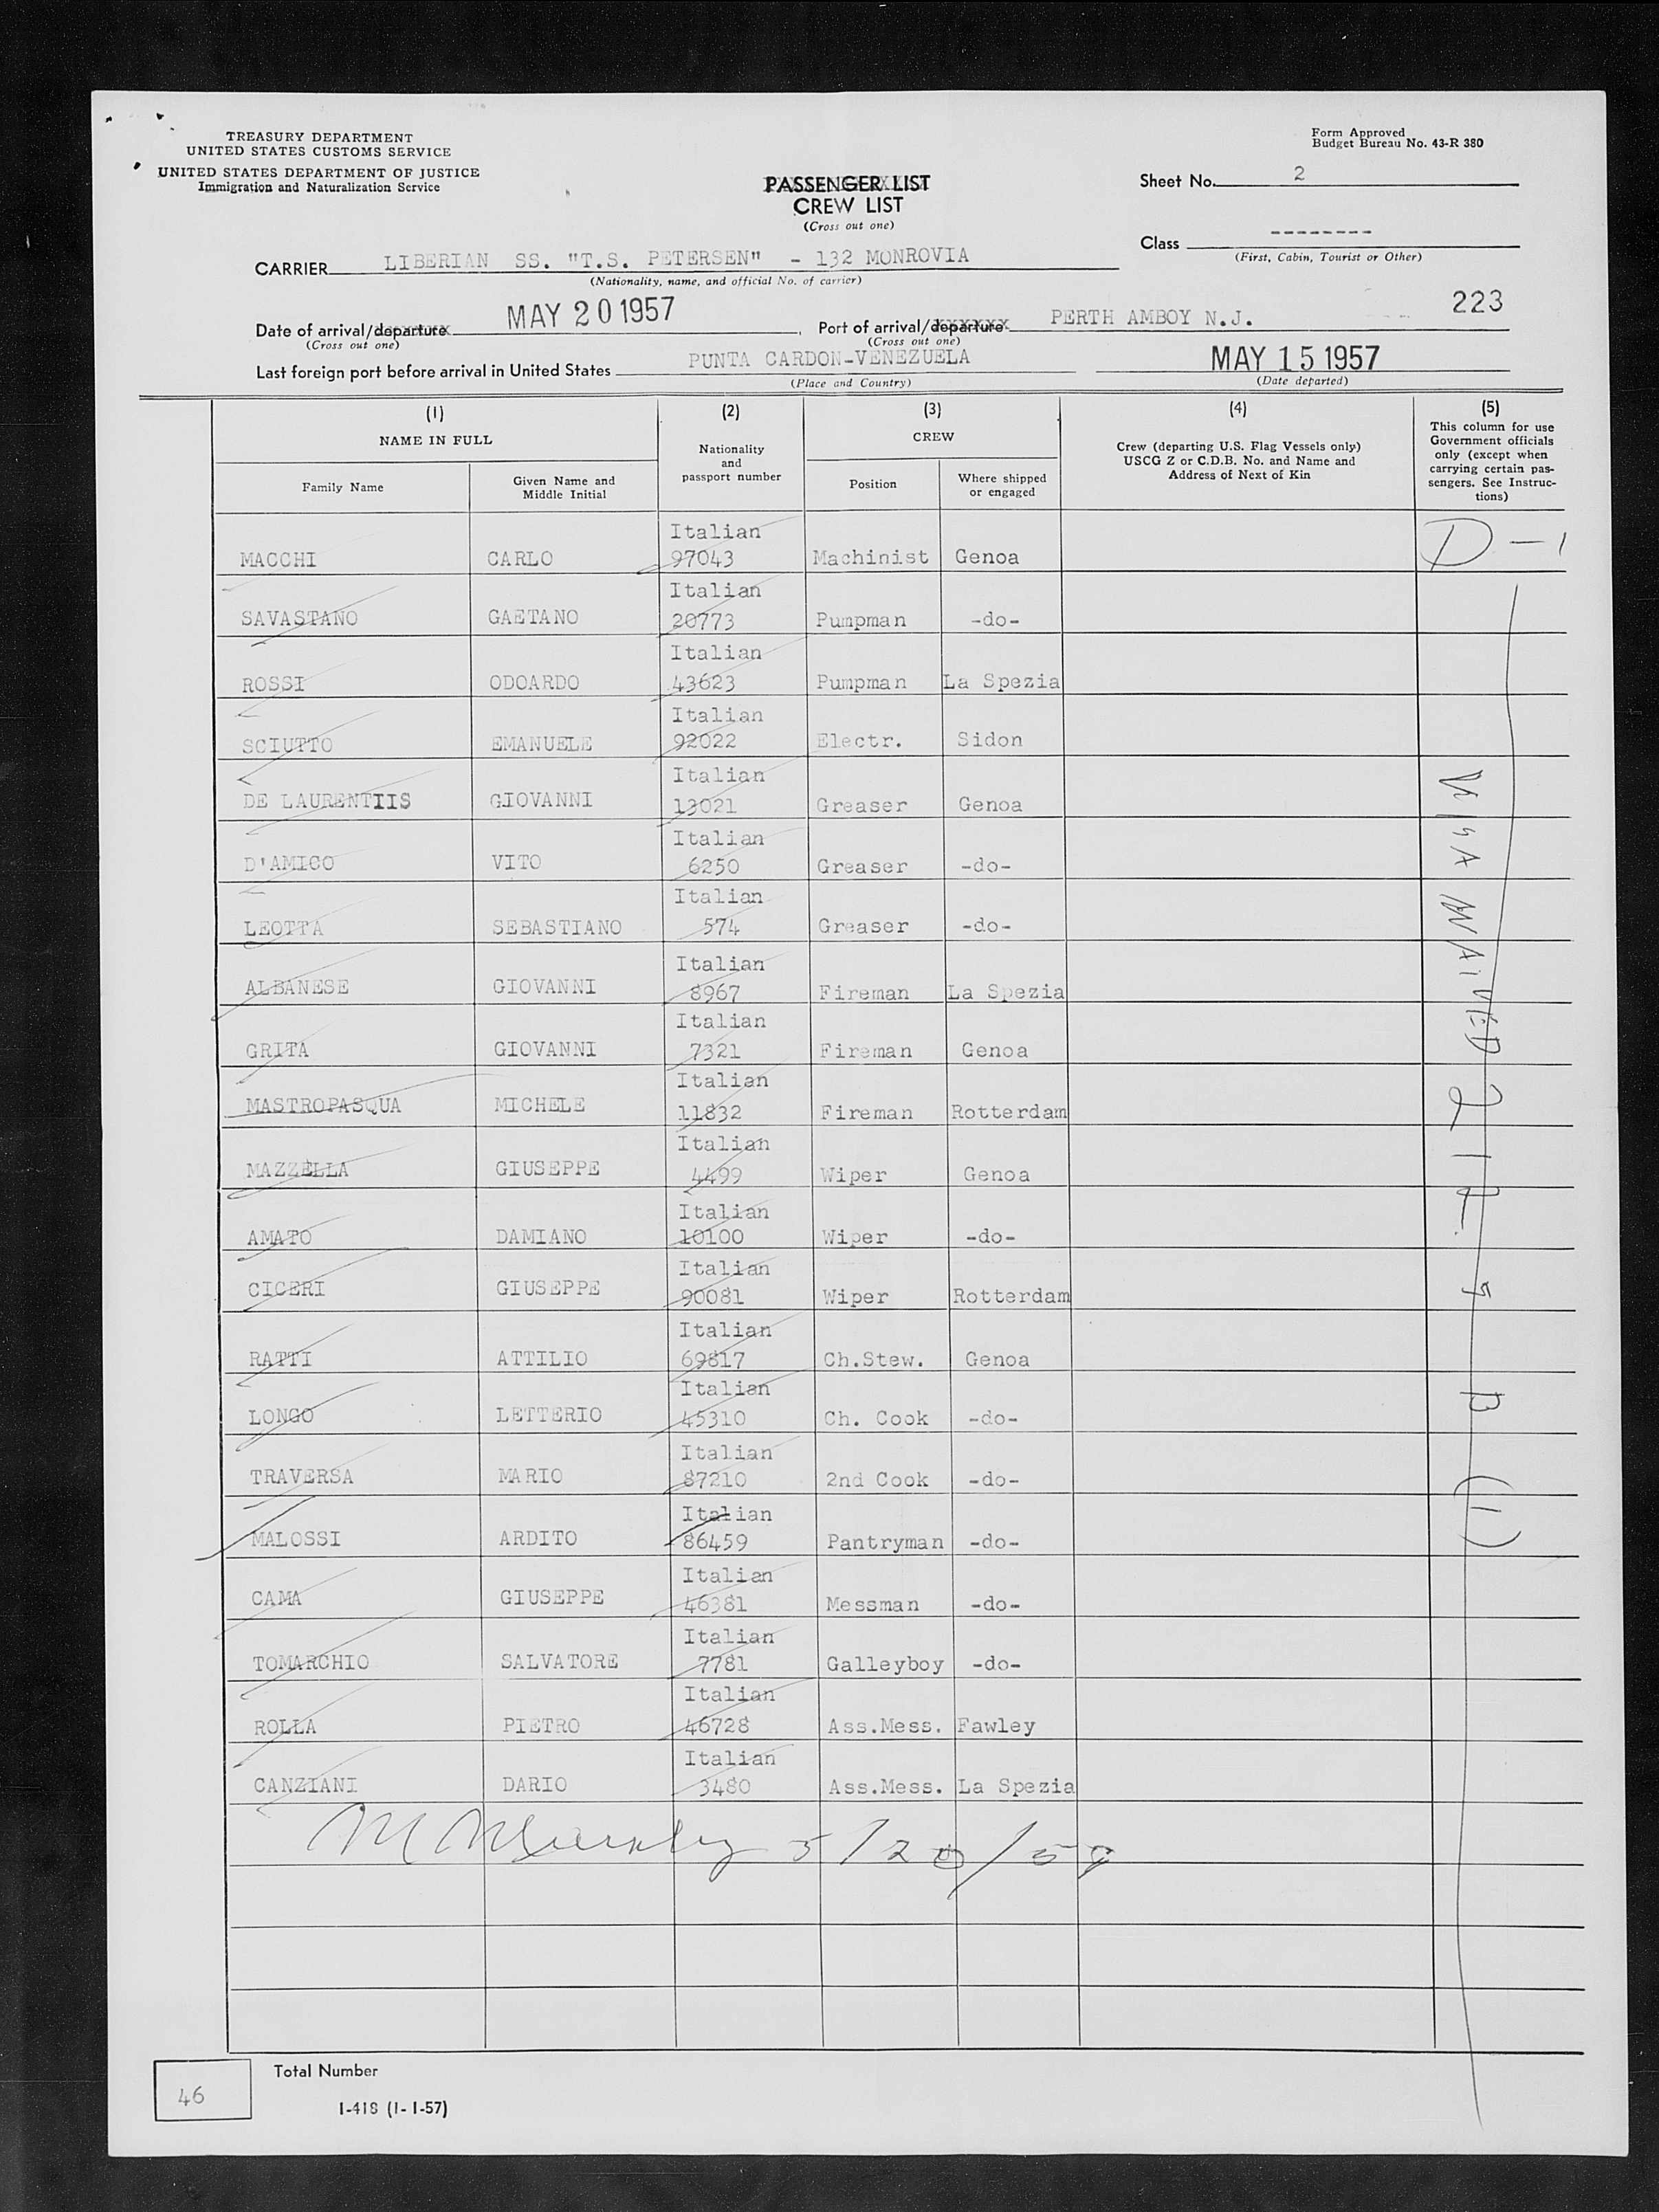 TREASURY DEPARTMENT
UNITED STATES CUSTOMS SERVICE
UNITED STATES DEPARTMENT OF JUSTICE
Immigration and Naturalization Service
Form Approved
Budget Bureau No. 43-R 380
PASSENGER LIST
CREW LIST
(Cross out one)
Sheet No. 2
Class --------
(First, Cabin, Tourist or Other)
CARRIER LIBERIAN SS. "T.S. PETERSEN" - 132 MONROVIA
(Nationality, name, and official No. of carrier)
223
Date of arrival/departure MAY 20 1957, Port of arrival/departure PERTH AMBOY N.J.
(Cross out one) (Cross out one)
Last foreign port before arrival in United States PUNTA CARDON-VENEZUELA MAY 15 1957
(Place and Country) (Date departed)
(1) (2) (3) (4) (5)
NAME IN FULL
Family Name
Given Name and
Middle Initial
Nationality
and
passport number
CREW
Position
Where shipped
or engaged
Crew (departing U.S. Flag Vessels only)
USCG Z or C.D.B. No. and Name and
Address of Next of Kin
This column for use
Government officials
only (except when
carrying certain pas-
sengers. See Instruc-
tions)
Italian
MACCHI CARLO 97043 Machinist Genoa D-1
Italian
SAVASTANO GAETANO 20773 Pumpman -do-
Italian
ROSSI ODOARDO 43623 Pumpman La Spezia
Italian
SCIUTTO EMANUELE 92022 Electr. Sidon
Italian
DE LAURENTIIS GIOVANNI 13021 Greaser Genoa
Italian
D'AMICO VITO 6250 Greaser -do-
Italian
LEOTTA SEBASTIANO 574 Greaser -do-
Italian
ALBANESE GIOVANNI 8967 Fireman La Spezia
Italian
GRITA GIOVANNI 7321 Fireman Genoa
Italian
MASTROPASQUA MICHELE 11832 Fireman Rotterdam
Italian
MAZZELLA GIUSEPPE 4499 Wiper Genoa
Italian
AMATO DAMIANO 10100 Wiper -do-
Italian
CICERI GIUSEPPE 90081 Wiper Rotterdam
Italian
RATTI ATTILIO 69817 Ch.Stew. Genoa
Italian
LONGO LETTERIO 45310 Ch. Cook -do-
Italian
TRAVERSA MARIO 87210 2nd Cook -do-
Italian
MALOSSI ARDITO 86459 Pantryman -do-
Italian
CAMA GIUSEPPE 46381 Messman -do-
Italian
TOMARCHIO SALVATORE 7781 Galleyboy -do-
Italian
ROLLA PIETRO 46728 Ass.Mess. Fawley
Italian
CANZIANI DARIO 3480 Ass.Mess. La Spezia
VISA WAIVED 212.
5/20/57
46
Total Number
I-418 (1-1-57)